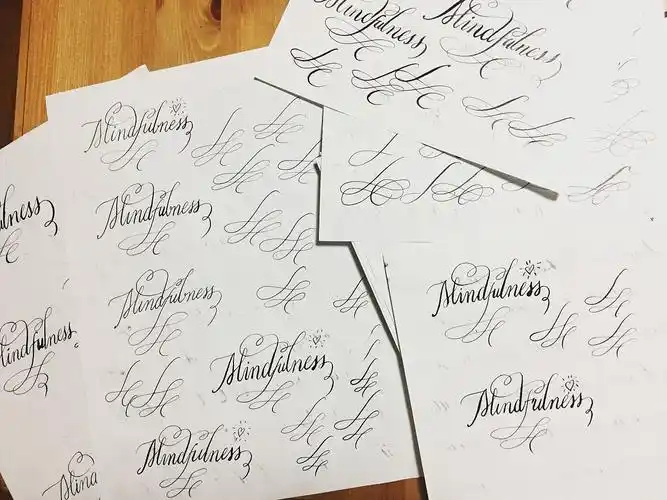 Mindfulness
Mindfulness
Mindfulness
Mindfulness
Mindfulness
Mindfulness
Mindfulness
lness
indfulness
Mina
Mindfulness
Mindfulness